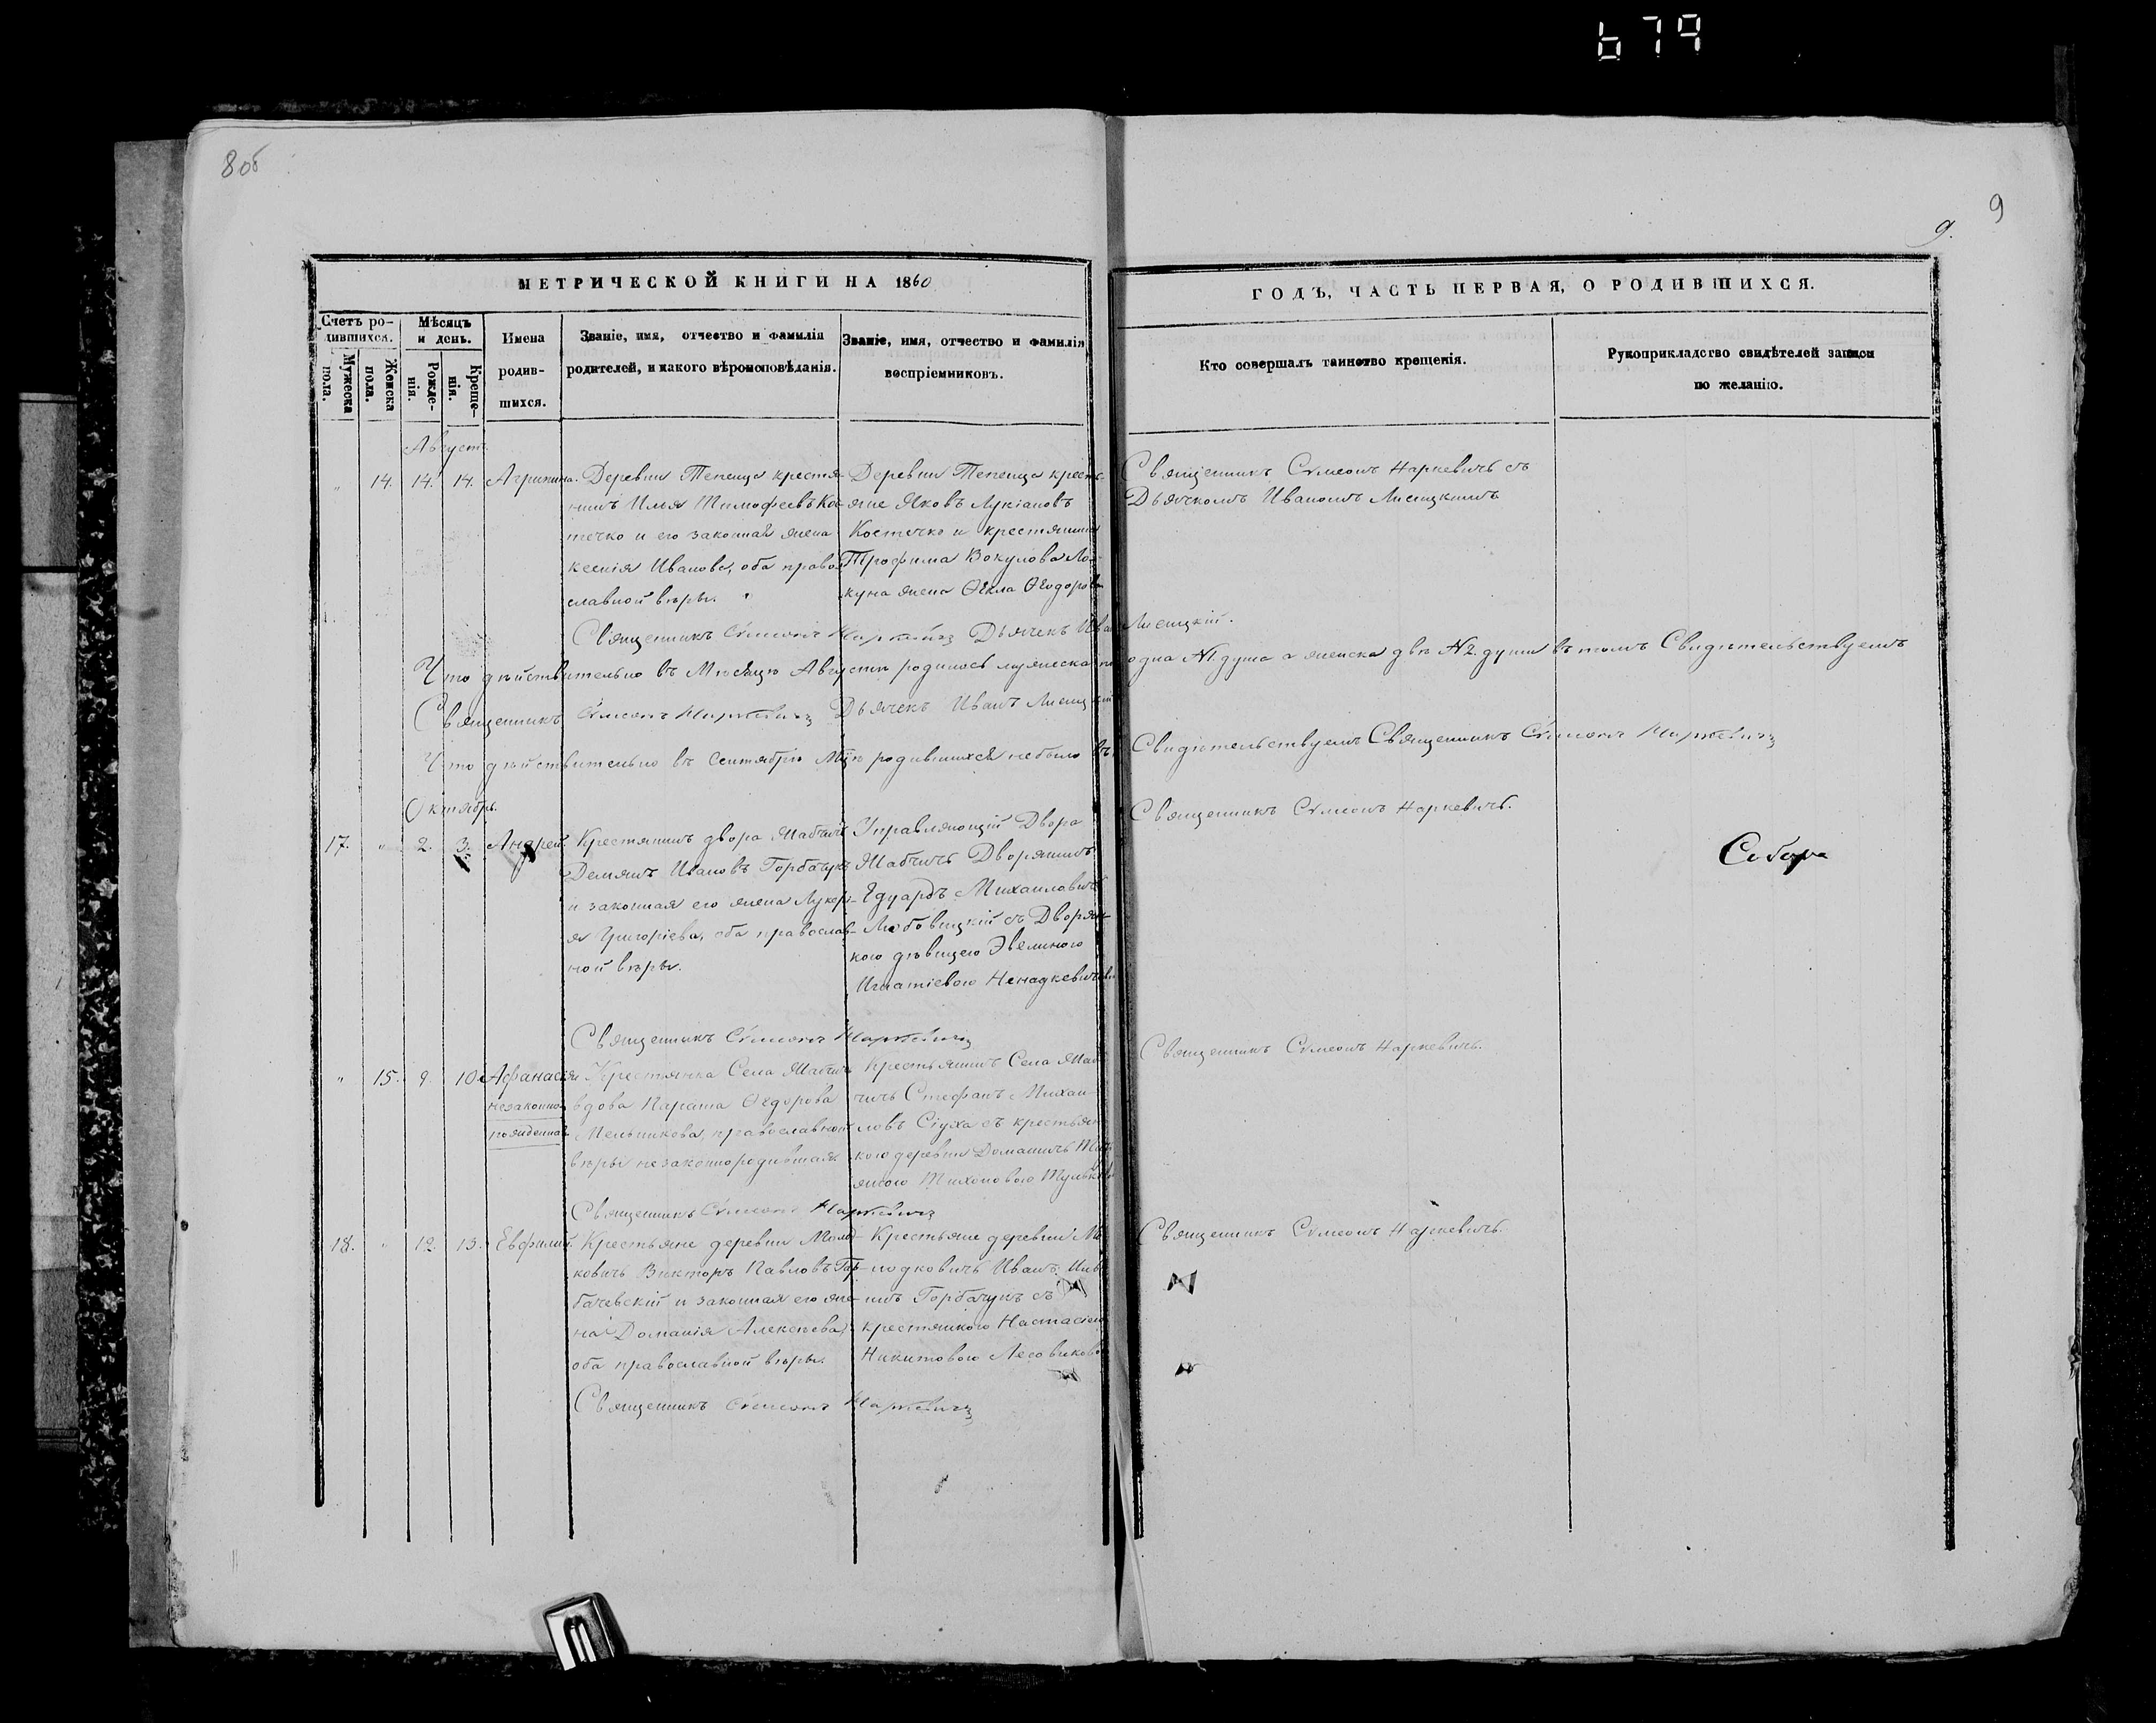 679
8об
9
9.
МЕТРИЧЕСКОЙ КНИГИ НА 1860
ГОДЪ, ЧАСТЬ ПЕРВАЯ, О РОДИВШИХСЯ.
Счетъ ро-
дившихся.
Мужеска
пола.
Женска
пола.
Мѣсяцъ
и день.
Рожде-
нія.
Креще-
нія.
Имена
родив-
шихся.
Званіе, имя, отчество и фамилія
родителей, и какого вѣроисповѣданія.
Званіе, имя, отчество и фамилія
воспріемниковъ.
Кто совершалъ таинство крещенія.
Рукоприкладство свидѣтелей записи
по желанію.
Августъ.
" 14. 14. 14. Агрипина.
Деревни Тепенца крестя-
нинъ Илья Тимофеевъ Кос-
течко и его законная жена
Ксенія Иванова, оба право-
славной вѣры.
Деревни Тепенца кресть-
яне Яковъ Лукіановъ
Костечко и крестянина
Трофима Вокулова Ло-
куна жена Ѳекла Ѳеодорова
Священникъ Сѵмеонъ Наркевичъ съ
Дьячкомъ Иваномъ Лисицкимъ
Священникъ Сѵмеонъ Наркевичъ Дьячекъ Иванъ Лисицкій.
Что дѣйствительно въ Мѣсяцѣ Августѣ родилось мужеска по одна №1 душа а женска двѣ №2 души въ томъ Свидѣтельствуемъ
Священникъ Сѵмеонъ Наркевичъ Дьячекъ Иванъ Лисицкій
Что дѣйствительно въ Сентябрѣ Мцѣ родившихся небыло въ Свидѣтельствуемъ Священникъ Сѵмеонъ Наркевичъ
Октябрь.
17. " 2. 3. Андрей.
Крестянинъ двора Жабчичъ
Демянъ Ивановъ Горбачукъ
и законная его жена Лукер-
я Григоріева, оба православ-
ной вѣры.
Управляющій Двора
Жабчичъ Дворянинъ
Едуардъ Михаиловичъ
Любовицкій съ Дворян-
кою дѣвицею Эвелиною
Игнатіевою Ненадкевичовн
Священникъ Сѵмеонъ Наркевичъ.
Священникъ Сѵмеонъ Наркевичъ
" 15. 9. 10. Афанасія
незаконно-
рожденная
Крестянка Села Жабчичъ
вдова Параша Ѳедорова
Мельникова, православной
вѣры незаконнородившая.
Крестьянинъ Села Жаб-
чичъ Стефанъ Михаи-
ловъ Сіуха съ крестьян-
кою деревни Домашичъ
Тихоновою
Священникъ Сѵмеонъ Наркевичъ.
Священникъ Сѵмеонъ Наркевичъ
18. " 12. 13. Евфимій.
Крестьяне деревни
ковичъ Викторъ Павловъ Гор-
бачевскій и законная его же-
на Доманія Алексѣева,
оба православной вѣры.
Крестьяне деревни Мо-
лодковичъ Иванъ
Горбачукъ съ
крестянкою Настасіею
Никитовою Лесовиково
Священникъ Сѵмеонъ Наркевичъ.
Священникъ Сѵмеонъ Наркевичъ